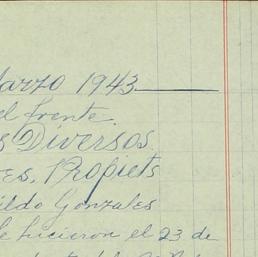 Marzo 1943
el frente.
s Diversos.
es, Propiets
ildo Gonzales
le hicieron el 23 de